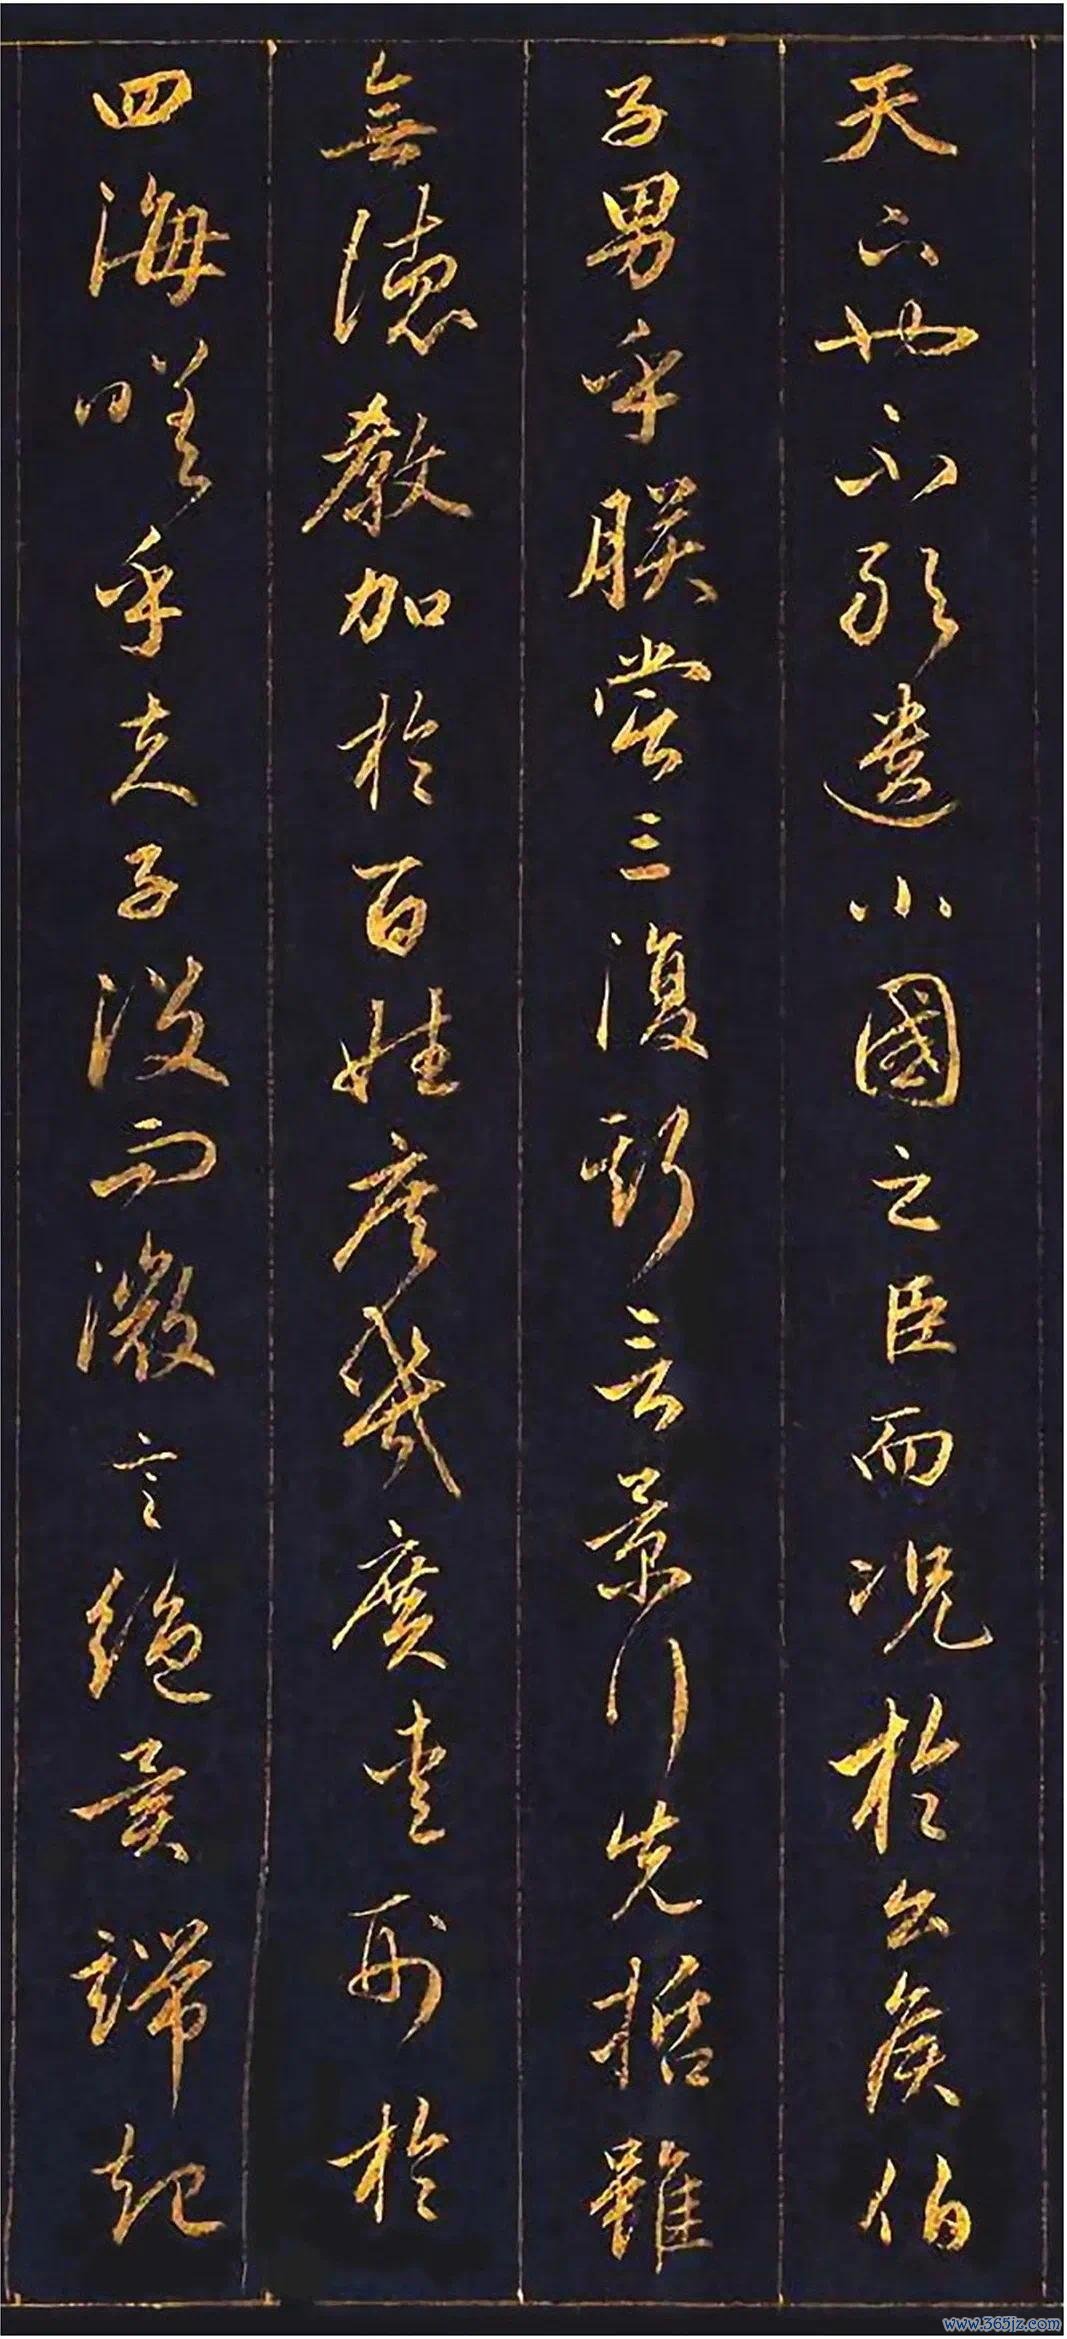 天下也不敢遺小國之臣而况於公侯伯
子男乎朕嘗三復斯言景行先哲雖
無德教加於百姓庶幾廣愛刑於
四海嗟乎夫子沒而微言絕異端起
www.365jz.com